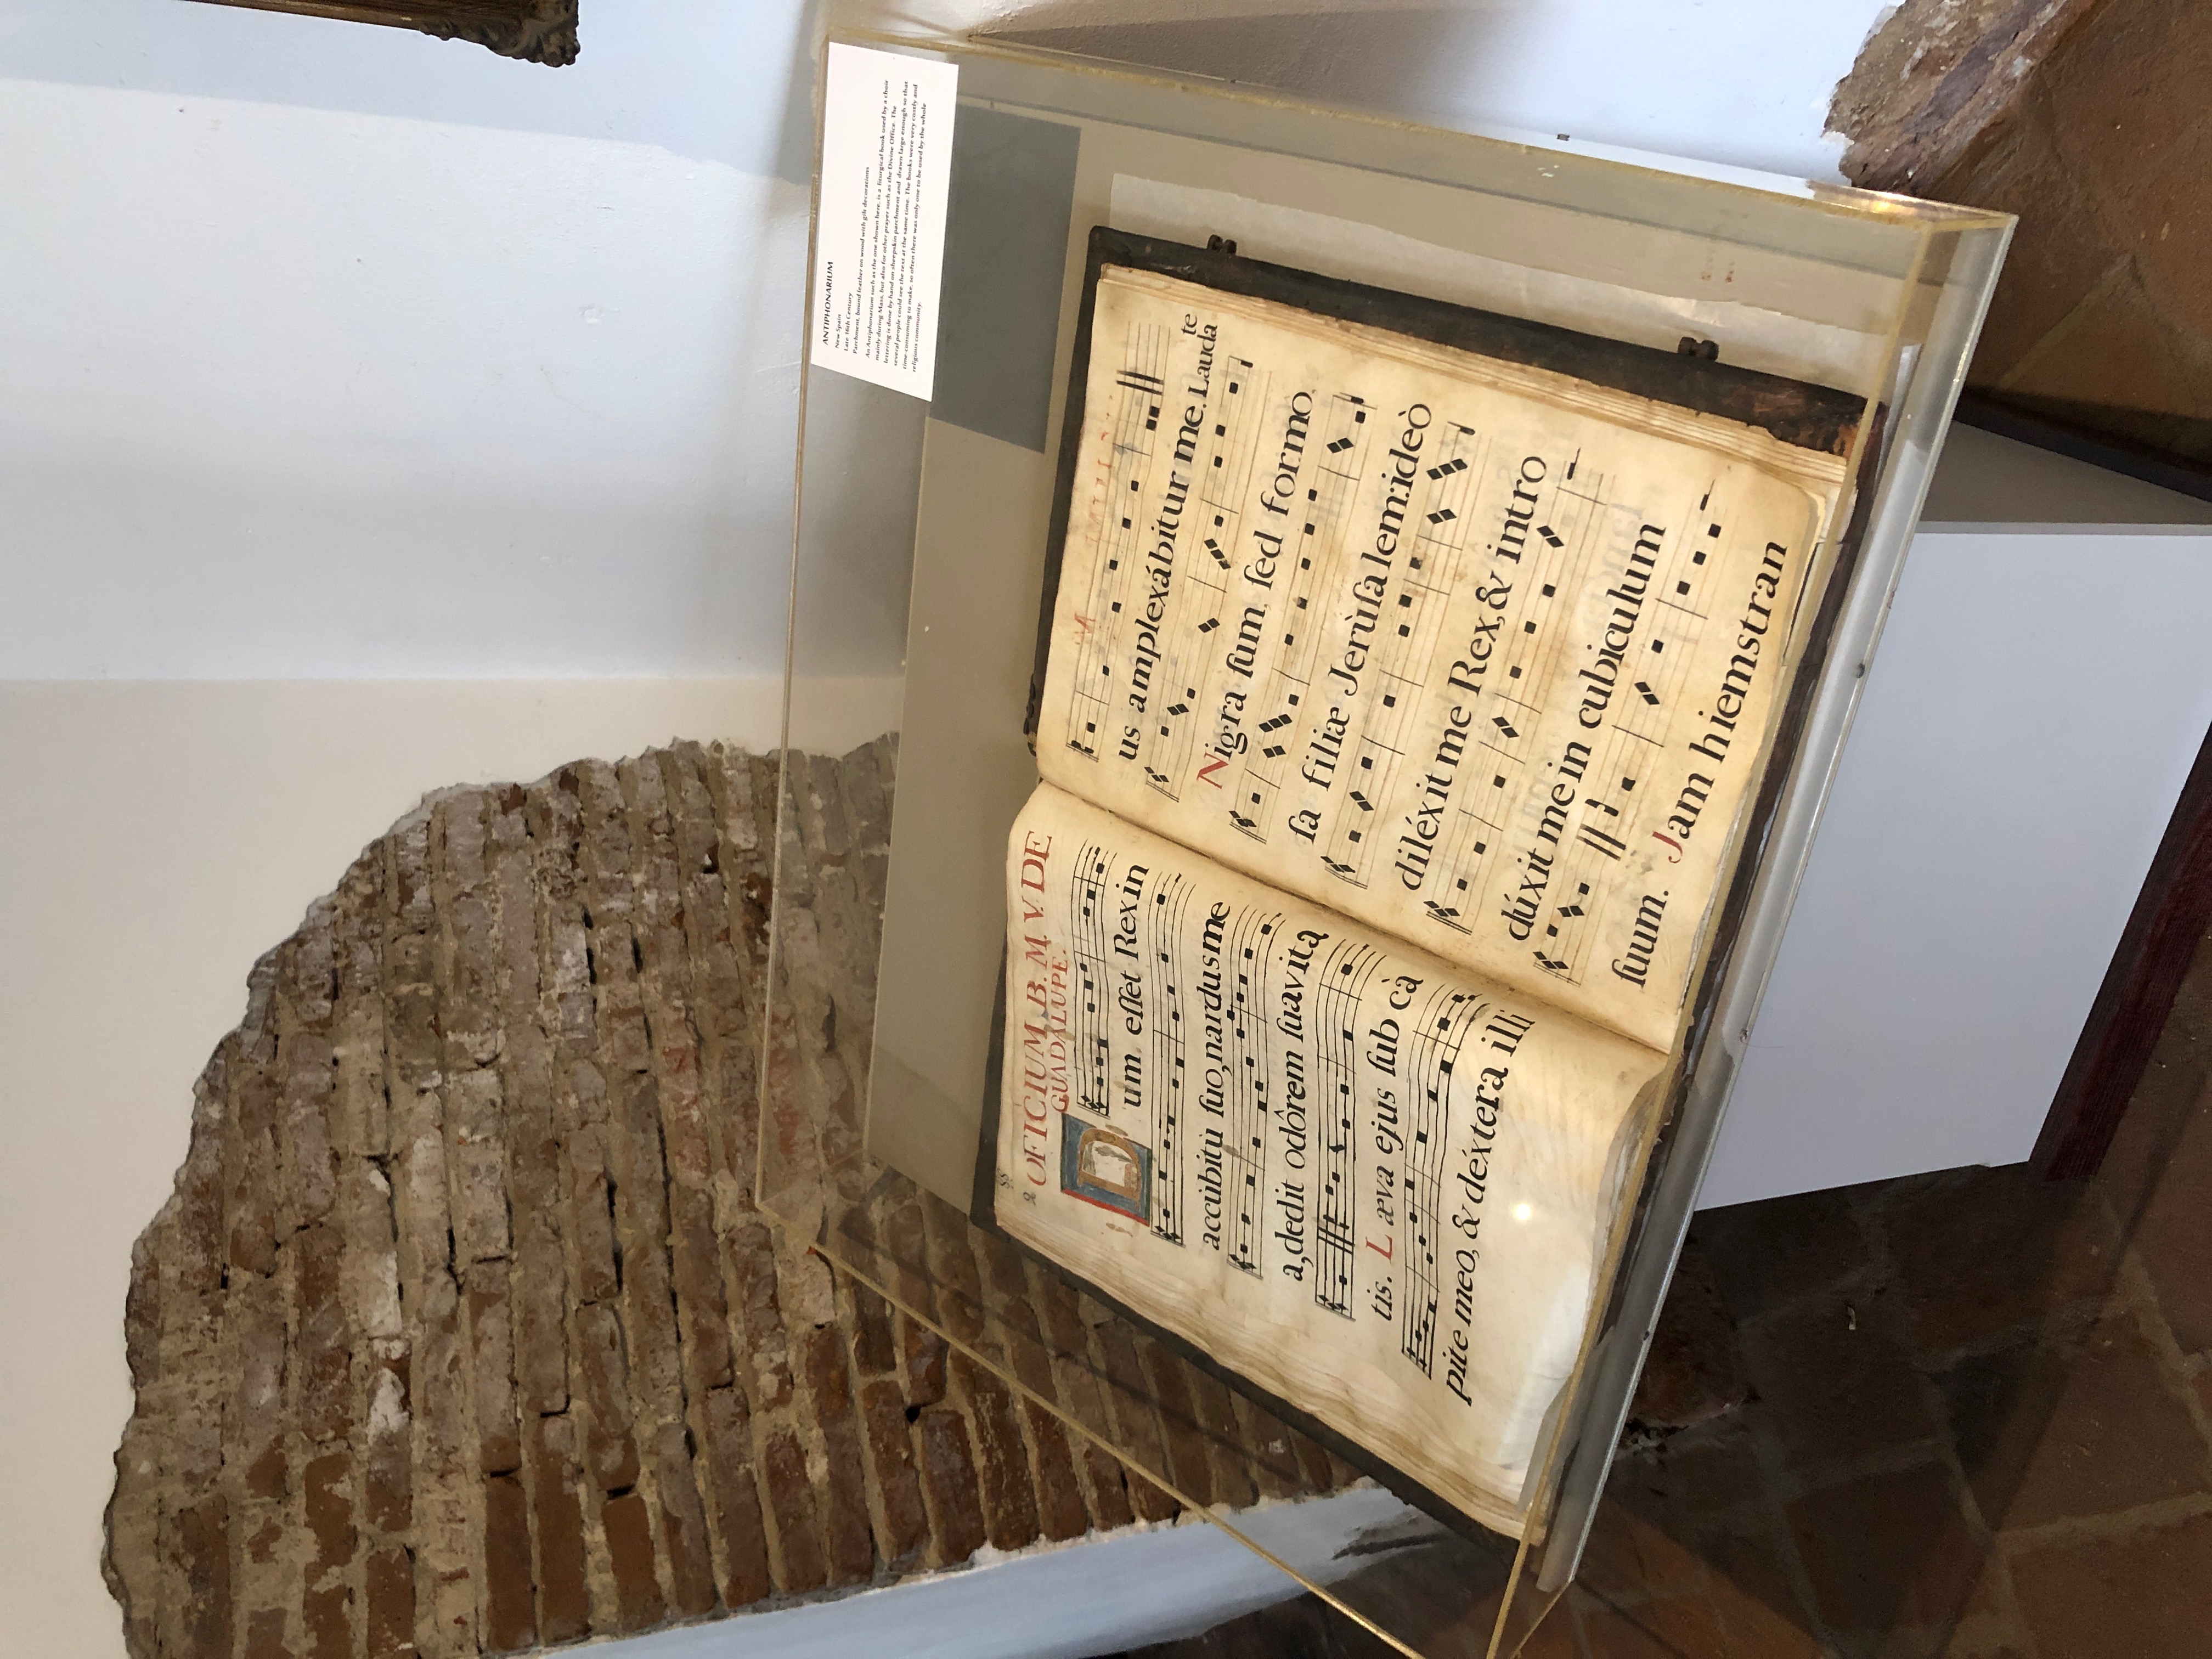 ANTIPHONARIUM
New Spain
Late 16th Century
Parchment, bound leather on wood with gilt decorations
An Antiphonarium such as the one shown here, is a liturgical book used by a choir
mainly during Mass, but also for other prayer such as the Divine Office. The
lettering is done by hand on sheepskin parchment and drawn large enough so that
several people could see the text at the same time. The books were very costly and
time-consuming to make, so often there was only one to be used by the whole
religious community.
OFICIUM. B. M. V. DE
GUADALUPE.
Dum eſſet Rex in
accúbitu ſuo, nardus me
a, dedit odôrem ſuavita
tis. Læva ejus ſub cà
pite meo, & déxtera illi
us amplexábitur me. Lauda
te
Nigra ſum, ſed formo
ſa filiæ Jerùſalem: ideò
diléxit me Rex, & intro
dúxit me in cubiculum
ſuum. Jam hiemstran